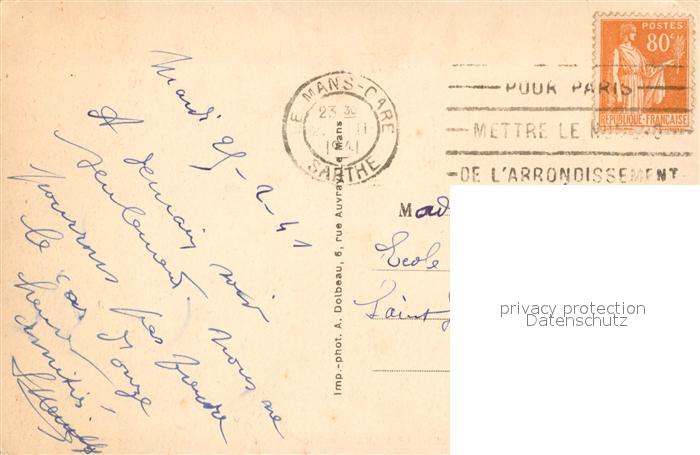 Mardi 25-2-41
A demain soir
seulement. nous ne
pourrons pas prendre
le car d'onze
heures
amitiés.
LE MANS-GARE
23 30
II
1941
SARTHE
POUR PARIS
METTRE LE
DE L'ARRONDISSEMENT
POSTES
80c
REPUBLIQUE-FRANÇAISE
Imp.-phot. A. Dolbeau, 6, rue Auvray, Le Mans
Mad
Ecole
Saint
privacy protection
Datenschutz